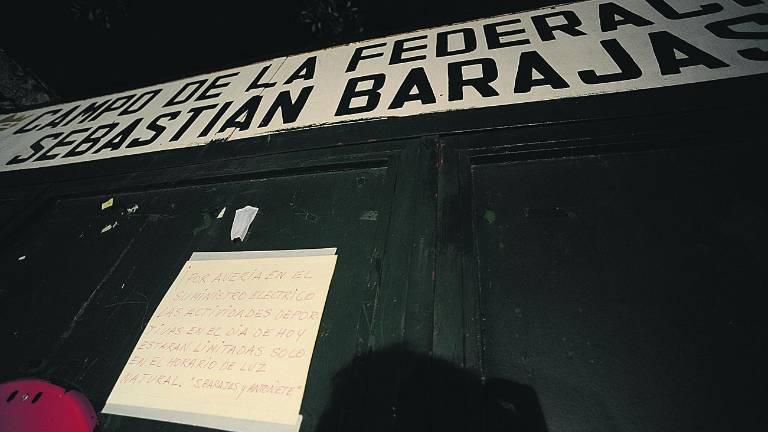 CAMPO DE LA FEDERACI
SEBASTIÁN BARAJAS
POR AVERÍA EN EL
SUMINISTRO ELECTRICO
LAS ACTIVIDADES DEPOR
TIVAS EN EL DIA DE HOY
ESTARAN LIMITADAS SOLO
EN EL HORARIO DE LUZ
NATURAL. "S.BARAJAS y ANTOÑETE"